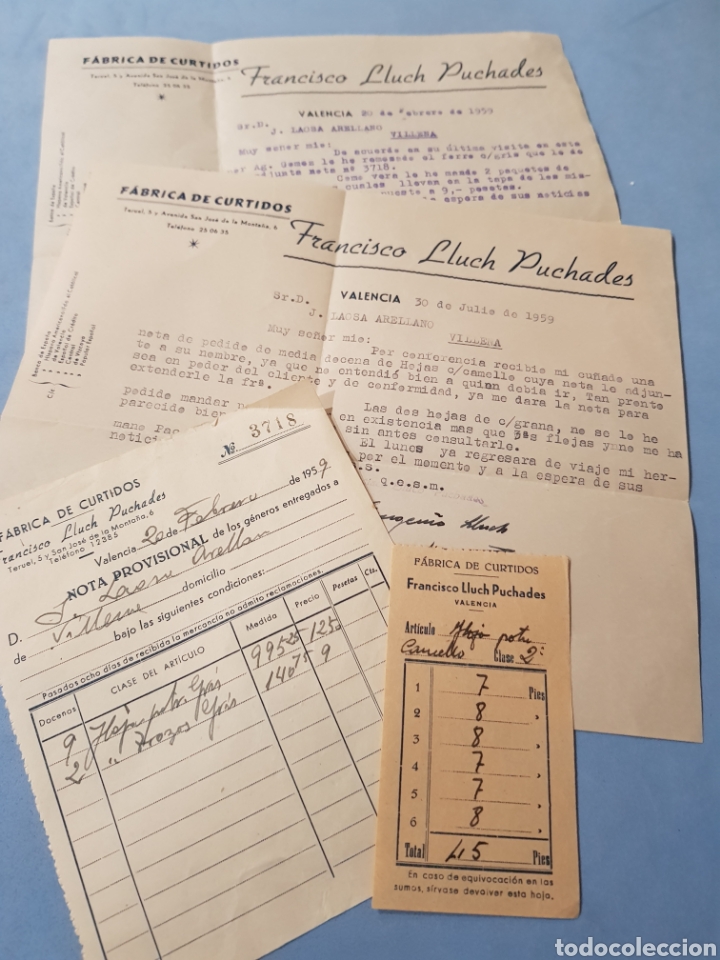 FÁBRICA DE CURTIDOS
Teruel, 5 y Avenida San José de la Montaña, 6
Teléfono 25 06 35
Francisco Lluch Puchades
VALENCIA 20 de Febrero de 1959
Sr.D.
J. LAOSA ARELLANO
VILLENA
Muy señor mie:
De acuerdo en su última visita en este
Ag. Gomez le he remesado el forro c/gris que le de
junto nota nº 3718.
Como vera le he mando 2 paquetes de
cuales llevan en la tapa de les mis-
a 9,- pesetas.
la espera de sus noticias
FÁBRICA DE CURTIDOS
Teruel, 5 y Avenida San José de la Montaña, 6
Teléfono 25 06 35
Francisco Lluch Puchades
VALENCIA 30 de Julio de 1959
Sr.D.
J. LAOSA ARELLANO
VILLENA
Muy señor mie:
Por conferencia recibie mi cuñado una
neta de pedide de media decena de Hojas c/camelle cuya neta le adjun-
te a su nombre, ya que ne entendió bien a quien debia ir, Tan pronte
sea en peder del cliente y de conformidad, ya me dara la neta para
extenderle la frª.
Las dos hejas de c/grana, ne se le he
pedide mandar
en existencia mas que 3ªs flejas yne me ha
parecide bien
sin antes consultarle.
El lunes ya regresara de viaje mi her-
mano Pac
por el momento y a la espera de sus
q.e.s.m.
Eugenio Lluch
Banco de España
Hispano Americano
de Valencia
Español de Crédito
Central
de Vizcaya
Popular Español
FÁBRICA DE CURTIDOS
Francisco Lluch Puchades
Teruel, 5 y San José de la Montaña, 6
Teléfono 12385
Nº 3718
Valencia 20 de Febrero de 1959
NOTA PROVISIONAL de los géneros entregados a
D. J. Laosa Arellan
de Villena domicilio
bajo las siguientes condiciones:
Pasados ocho días de recibida la mercancía no admito reclamaciones.
Docenas CLASE DEL ARTÍCULO Medida Precio Pesetas Cts.
9 Hoja potro Gris 995 25 1250
2 " Trozos Gris 140 75 9
FÁBRICA DE CURTIDOS
Francisco Lluch Puchades
VALENCIA
Artículo Hoja potro
Camello Clase 2ª
1 7 Pies
2 8 "
3 8 "
4 7 "
5 7 "
6 8 "
Total 45 Pies
En caso de equivocación en las
sumas, sírvase devolver esta hoja.
todocoleccion